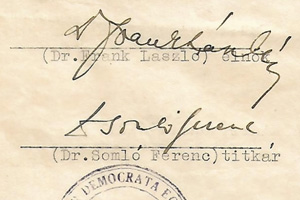 Dr Frank László
(Dr. Frank Laszló) elnök
Somló Ferenc
(Dr. Somló Ferenc) titkár
DEMOCRATA